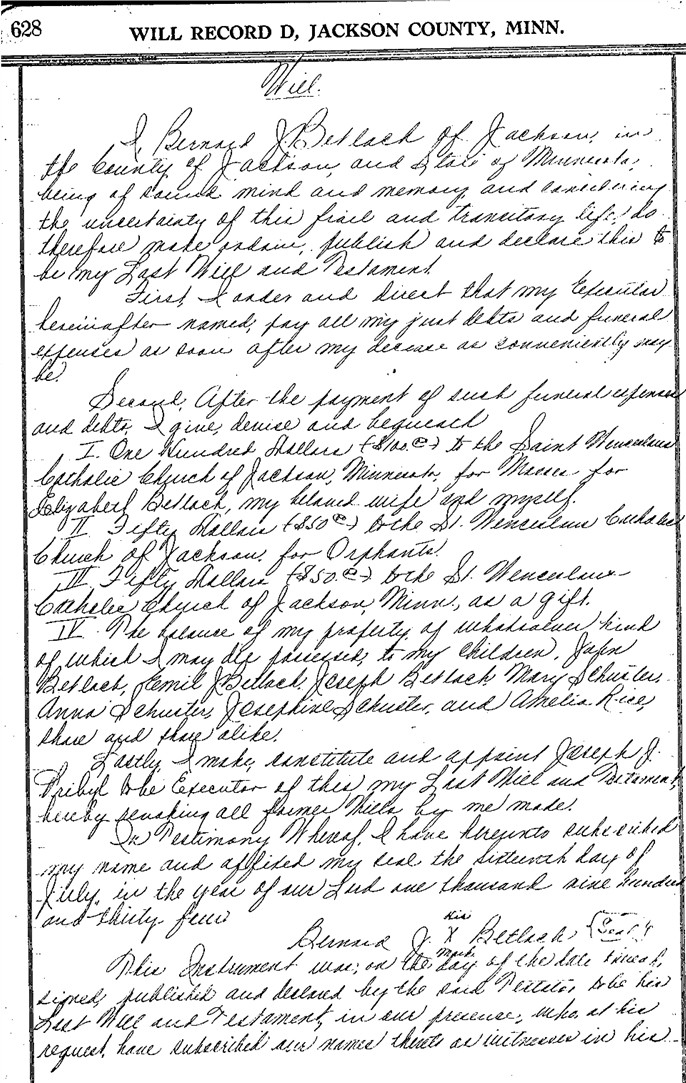 628
WILL RECORD D, JACKSON COUNTY, MINN.
Will.
I, Bernard J. Betlach of Jackson, in
the County of Jackson, and State of Minnesota,
being of sound mind and memory, and considering
the uncertainty of this frail and transitory life, do
therefore make, ordain, publish and declare this to
be my Last Will and Testament.
First, I order and direct that my Executor
hereinafter named, pay all my just debts and funeral
expenses as soon after my decease as conveniently may
be.
Second, After the payment of such funeral expenses
and debts, I give, devise and bequeath
I. One Hundred Dollars ($100.00) to the Saint Wenceslaus
Catholic Church of Jackson, Minnesota, for Masses for
Elizabeth Betlach, my beloved wife and myself.
II Fifty Dollars ($50.00) to the St. Wenceslaus Catholic
Church of Jackson, for Orphants.
III Fifty Dollars ($50.00) to the St. Wenceslaus
Catholic Church of Jackson, Minn., as a gift.
IV. The balance of my property of whatsoever kind
of which I may die possessed, to my children, John
Betlach, Emil J. Betlach, Joseph Betlach, Mary Schuster,
Anna Schuster, Josephine Schuster, and Amelia Rice,
share and share alike.
Lastly I make, constitute and appoint Joseph J.
Pribyl to be Executor of this my Last Will and Testament,
hereby revoking all former Wills by me made.
In Testimony Whereof, I have hereunto subscribed
my name and affixed my seal the sixteenth day of
July, in the year of our Lord one thousand nine hundred
and thirty four
Bernard J. his X mark Betlach (Seal)
This Instrument was, on the day of the date thereof,
signed, published and declared by the said Testator to be his
Last Will and Testament, in our presence, who, at his
request, have subscribed our names thereto as witnesses in his